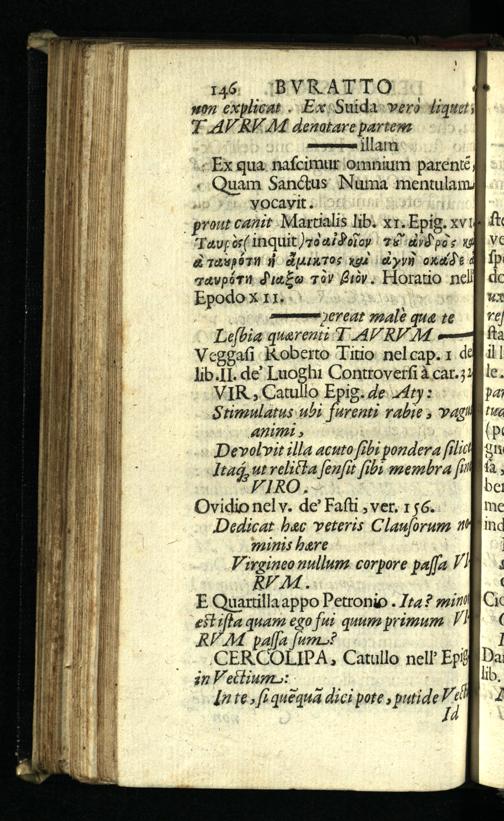 146 BVRATTO
non explicat. Ex Suida verò liquet,
TAVRVM denotare partem
illam
Ex qua nascimur omnium parentē,
Quam Sanctus Numa mentulam
vocavit.
prout canit Martialis lib. XI. Epig. XVI.
Ταυρὸς (inquit) τὸ αἰδοῖον τῦ ἀνδρὸς καὶ
ἀταυρότη ἡ ἄμικτος καὶ ἁγνὴ
ταυρότη διάξω τὸν βιὸν. Horatio nell'
Epodo XII.
pereat malè quæ te
Lesbia quærenti TAVRVM
Veggasi Roberto Titio nel cap. I de
lib. II. de' Luoghi Controversi à car. 32
VIR, Catullo Epig. de Aty:
Stimulatus ubi furenti rabie, vagu
animi,
Devolvit illa acuto sibi pondera silice
Itaq́; ut relicta sensit sibi membra sine
VIRO.
Ovidio nel v. de' Fasti, ver. 156.
Dedicat hæc veteris Clausorum no-
minis hære
Virgineo nullum corpore passa VI-
RVM.
E Quartilla appo Petronio. Ita? minor
est ista quam ego fui quum primum VI-
RVM passa sum?
CERCOLIPA, Catullo nell' Epig.
in Vectium:
In te, si quēquā dici pote, putide Vecti
Id